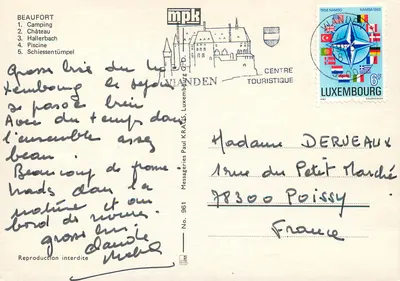 BEAUFORT
1. Camping
2. Château
3. Hallerbach
4. Piscine
5. Schiessentümpel
mpk
VIANDEN
CENTRE
TOURISTIQUE
VIANDEN
NAMSA 1968
6F
LUXEMBOURG
Gros bisous du Lu
xembourg le séjour
se passe bien
Avec du temps dans
l'ensemble assez
beau.
Beaucoup de prome-
nades dans la
nature et au
bord de
gros
Claude
Reproduction interdite
No. 961 Messageries Paul KRAUS, Luxembourg
Madame DERVEAUX
1 rue du Petit Marché
78300 Poissy
France